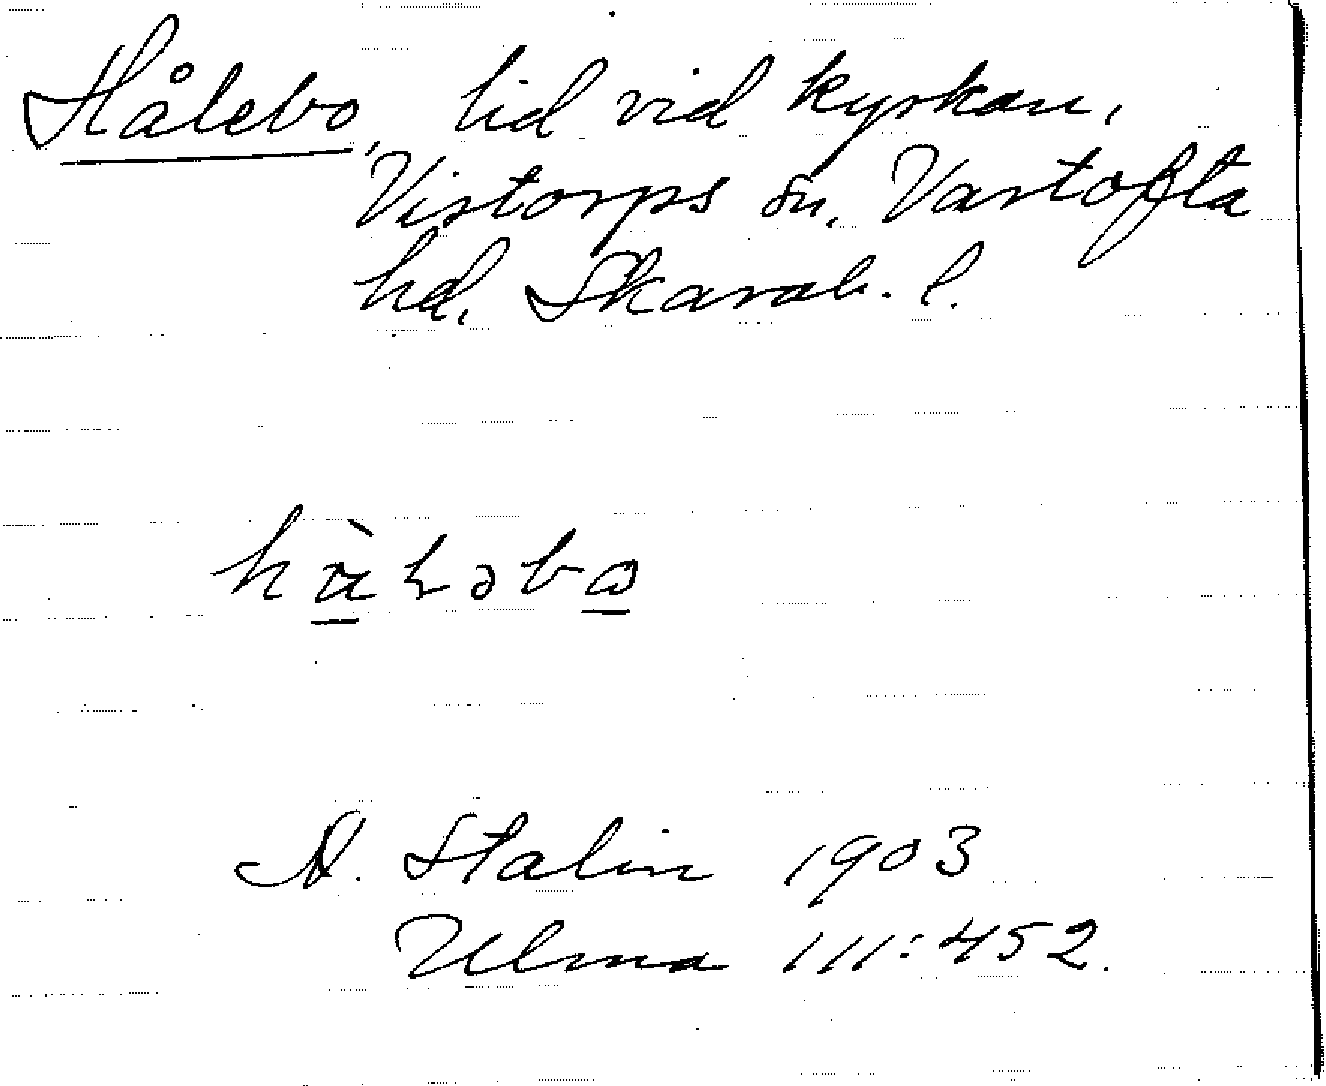 Hålebo, lid vid kyrkan,
Vistorps sn, Vartofta
hd, Skarab. l.
hàləbo
A. Stalin 1903
Ulma 111:452.